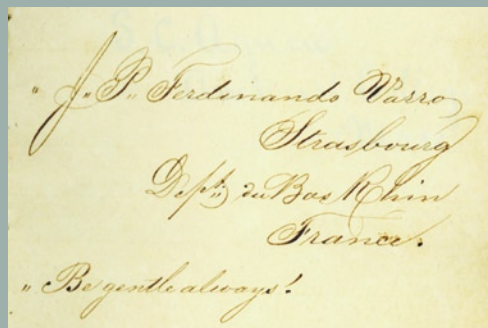 „ J. P. Ferdinando Varro
Strasbourg
Dept. du Bas Rhin
France.
„ Be gentle always!